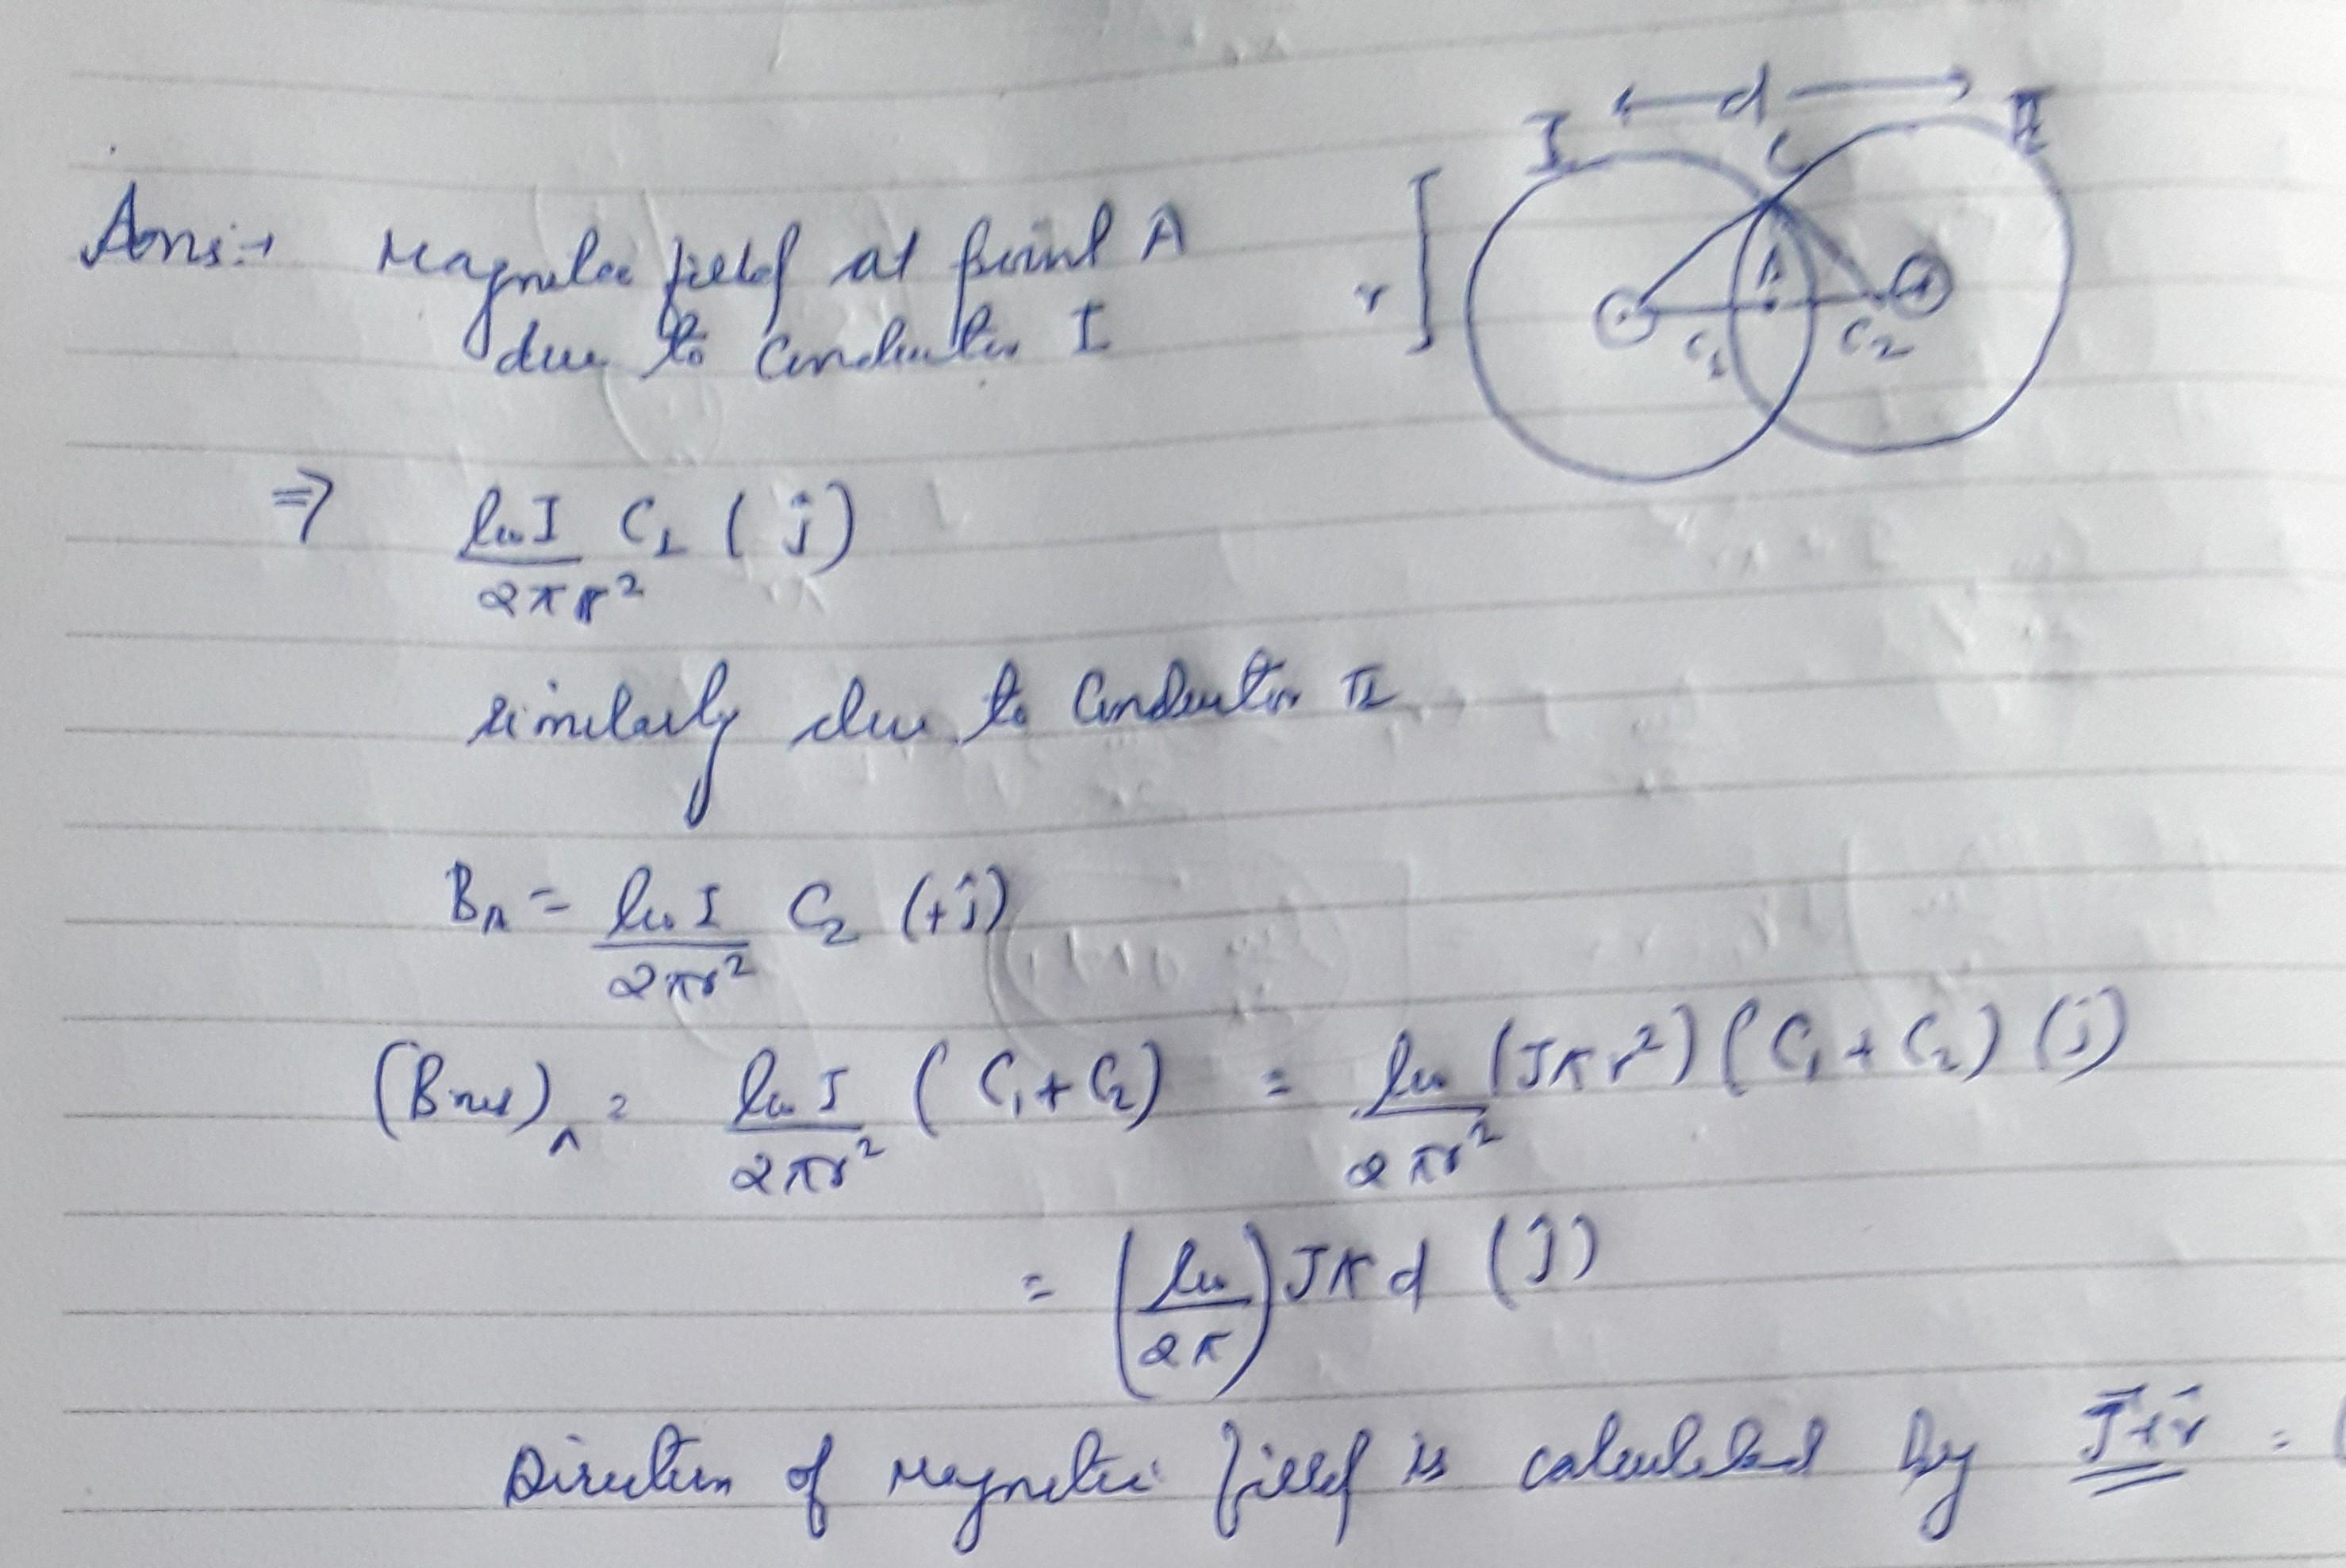 I ← d → II
C
Ans:→ Magnetic field at point A
r A
due to Conductor I
C₁ C₂
⇒ μ₀I/2πr² C₁ (ĵ)
similarly due to Conductor II
B_A = μ₀I/2πr² C₂ (+ĵ)
(Bnet)_A = μ₀I/2πr² (C₁+C₂) = μ₀/2πr² (Jπr²)(C₁+C₂)(ĵ)
= (μ₀/2π) Jπd (ĵ)
Direction of Magnetic field is calculated by J⃗×r⃗ = (